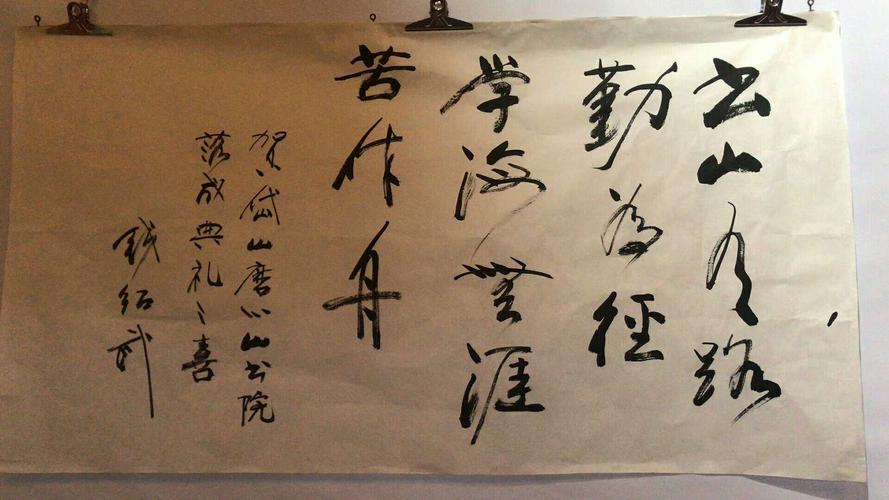 书山有路
勤为径
学海無涯
苦作舟
贺岱山磨心山书院
落成典礼之喜
钱绍武